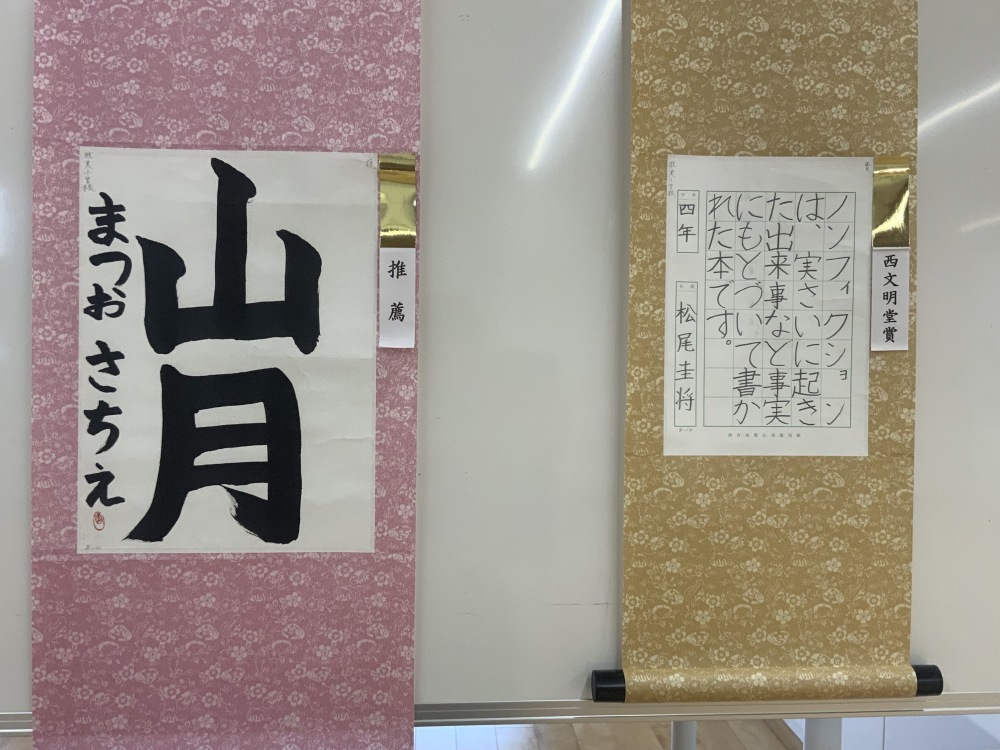 山月
まつお さちえ
推薦
ノンフィクション
は、実さいに起き
た出来事など事実
にもとづいて書か
れた本です。
四年
松尾圭将
西文明堂賞